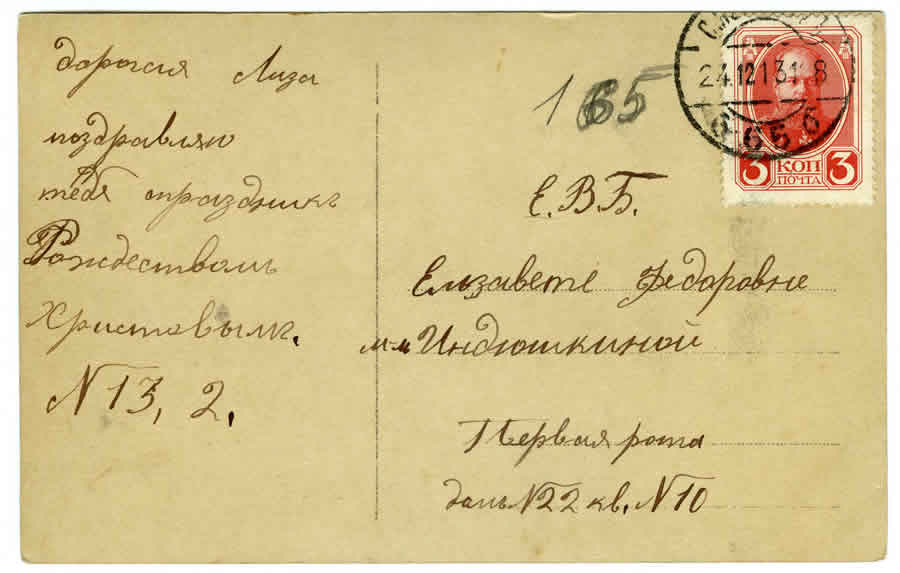 дорогая Лиза
поздравляю
тебя праздникъ
Рождествомъ
Христовымъ.
N 13, 2.
165
24.12.13
6 5 6
3 КОП 3
ПОЧТА
Е. В. Б.
Елизавете Федоровне
Индюшкиной
Первая рота
домъ N22 кв. N10